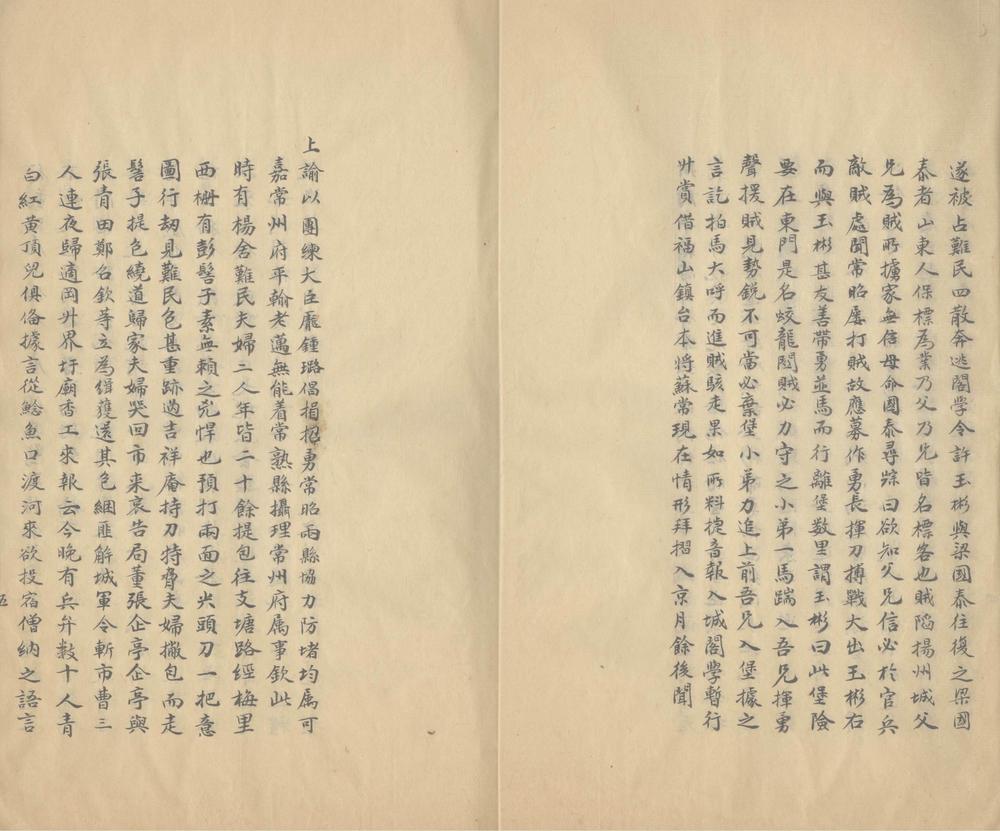 遂被占難民四散奔逃閣學令許玉彬與梁國泰往復之梁國
泰者山東人保標為業乃父乃兄皆名標客也賊陷揚州城父
兄為賊所擄家無信母命國泰尋踪曰欲知父兄信必於官兵
敵賊處聞常昭屡打賊故應募作勇長揮刀搏戰大出玉彬右
而與玉彬甚友善帶勇並馬而行離堡数里謂玉彬曰此堡險
要在東門是名蛟龍閗賊必力守之小弟一馬踹入吾兄揮勇
聲援賊見勢銳不可當必棄堡小弟力追上前吾兄入堡據之
言訖拍馬大呼而進賊駭走果如所料捷音報入城閣學暫行
升賞借福山鎮台本将蘇常現在情形拜摺入京月餘後聞
上諭以團練大臣龐鍾璐倡捐招勇常昭兩縣協力防堵均属可
嘉常州府平翰老邁無能着常熟縣攝理常州府属事欽此
時有楊舍難民夫婦二人年皆二十餘提包往支塘路經梅里
西柵有彭髻子素無賴之兇悍也預打兩面之尖頭刀一把意
圖行刼見難民包甚重跡過吉祥庵持刀持脅夫婦撇包而走
髻子提包繞道歸家夫婦哭回市来哀告局董張企亭企亭與
張青田鄭台欽等立為緝獲還其包綑匪解城軍令斬市曹三
人連夜歸適岡升界圩廟香工來報云今晚有兵弁数十人青
白紅黃頂兒俱俻據言從鯰魚口渡河來欲投宿僧納之語言
五